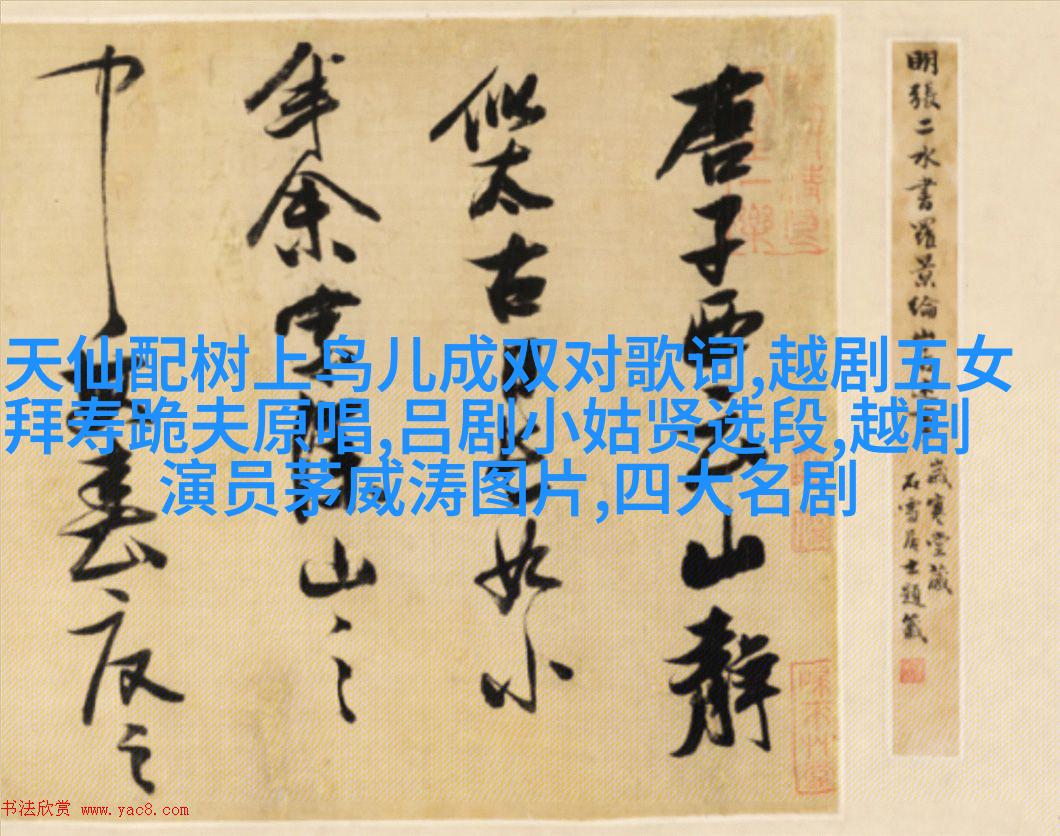 天仙配树上鸟儿成双对歌词,越剧五女
拜寿跪夫原唱,吕剧小姑贤选段,越剧
演员茅威涛图片,四大名剧
唐子西云山靜
似太古日長如小
年余家深山之
中每春夏之
明張二水書羅景綸山
歲寒堂藏
石雪居士題籤
书法欣赏 www.yac8.com